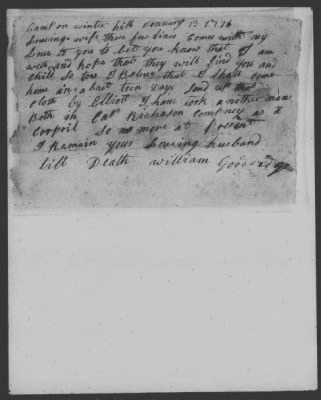 Camp on winter hill January 1st 1776
Loveing wife these few Lines Comes with my
Love to you to let you know that I am
well and hope that they will find you and
Child So too I Beleve that I shall come
home in about teen Days Send up that
cloth by Elliott I have took another mans
Both in Capt Richason Compney as a
Corpril So no more at Present
I Remain your Loveing husband
till Death william Goodridge